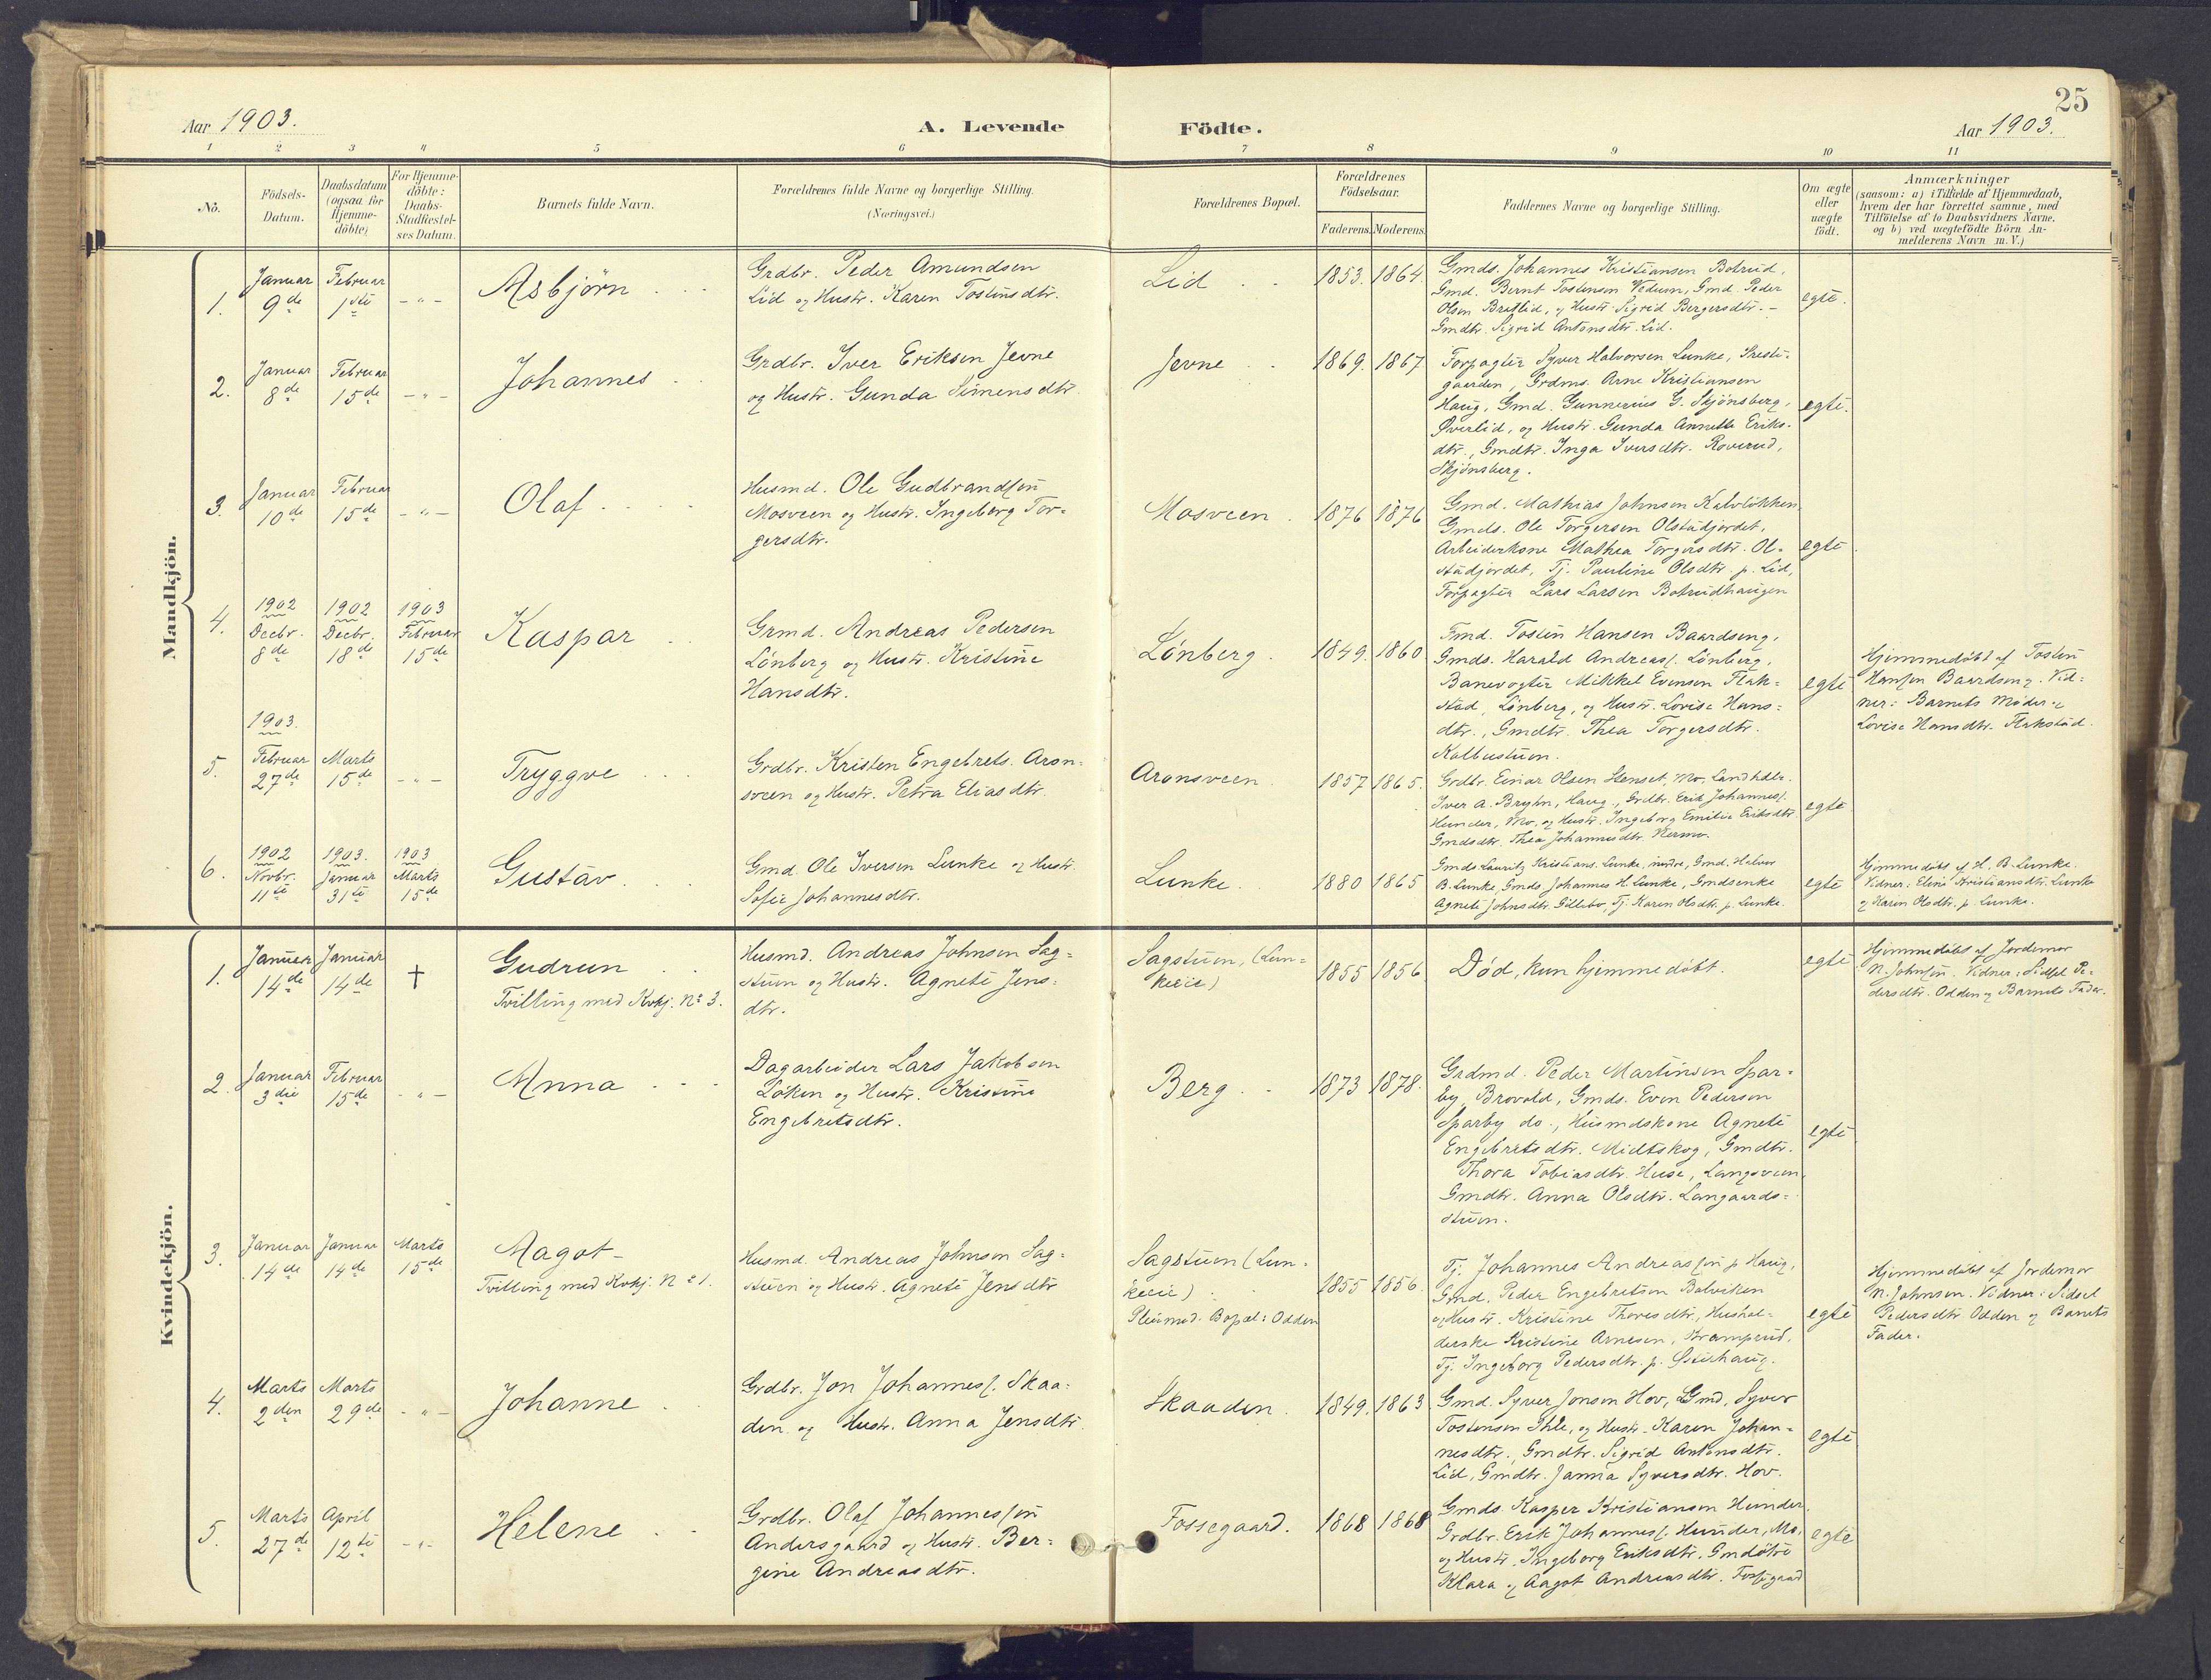 25
Aar 1903.
A. Levende Födte.
Aar 1903.
1 2 3 4 5 6 7 8 9 10 11
No.
Födsels-
Datum.
Daabsdatum
(ogsaa for
Hjemme-
döbte)
For Hjemme-
döbte:
Daabs-
Stadfæstel-
ses Datum.
Barnets fulde Navn.
Forældrenes fulde Navne og borgerlige Stilling.
(Næringsvei.)
Forældrenes Bopæl.
Forældrenes
Födselsaar.
Faderens. Moderens.
Faddernes Navne og borgerlige Stilling.
Om ægte
eller
uægte
födt.
Anmærkninger
(saasom: a) i Tilfælde af Hjemmedaab,
hvem der har forrettet samme, med
Tilföielse af to Daabsvidners Navne,
og b) ved uægtefödte Börn An-
melderens Navn m. V.)
Mandkjön.
1.
Januar
9de
Februar
1ste
- " -
Asbjörn
Grdbr. Peder Amundsen
Lid og Hustr. Karen Tostensdtr.
Lid
1853. 1864.
Gmds. Johannes Kristiansen Botrud,
Gmd. Bernt Tostensen Vedum, Gmd. Peder
Olsen Bratlid, og Hustr. Sigrid Bergersdtr. -
Gmdtr. Sigrid Antonsdtr. Lid.
egte.
2.
Januar
8de
Februar
15de
- " -
Johannes
Grdbr. Iver Eriksen Jevne
og Hustr. Gunda Simensdtr.
Jevne
1869. 1867
Forpagter Syver Halvorsen Lunke, Preste-
gaarden, Grdms. Arne Kristiansen
Haug, Gmd. Gunnerius G. Skjönsberg,
Øverlid, og Hustr. Gunda Annette Eriks-
dtr., Gmdtr. Inga Iversdtr. Roverud,
Skjönsberg.
egte.
3.
Januar
10de
Februar
15de
- " -
Olaf
Husmd. Ole Gudbrandsen
Mosveen og Hustr. Ingeborg Tor-
gersdtr.
Mosveen
1876 1876
Gmd. Mathias Johnsen Kalvlökken,
Gmds. Ole Torgersen Olstadjordet,
Arbeiderkone Mathea Torgersdtr. Ol-
stadjordet, Tj. Pauline Olsdtr. p. Lid,
Forpagter Lars Larsen Botrudhaugen
egte
4.
1902
Decbr.
8de
1902
Decbr.
18de
1903
Februar
15de
Kaspar
Grmd. Andreas Pedersen
Lönberg og Hustr. Kristine
Hansdtr.
Lönberg
1849. 1860
Fmd. Tosten Hansen Baardseng,
Gmds. Harald Andreass. Lönberg,
Banevogter Mikkel Evensen Flak-
stad, Lönberg, og Hustr. Lovise Hans-
dtr., Gmdtr. Thea Torgersdtr.
Kalbustuen.
egte
Hjemmedöbt af Tosten
Hansen Baardseng. Vid-
ner: Barnets Moder og
Lovise Hansdtr. Flakstad.
1903.
5.
Februar
27de
Marts
15de
- " -
Tryggve
Grdbr. Kristen Engebrets. Aron-
sveen og Hustr. Petra Eliasdtr.
Aronsveen
1857 1865.
Grdbr. Einar Olsen Stenset, Mo, Landhdlr.
Iver A. Bryhn, Haug, Grdbr. Erik Johanness.
Hunder, Mo, og Hustr. Ingeborg Emilie Eriksdtr.
Gmdsdtr. Thea Johannesdtr. Nermo.
egte
6.
1902
Novbr.
11te
1903.
Januar
31te
1903
Marts
15de
Gustav
Gmd. Ole Iversen Lunke og Hustr.
Sofie Johannesdtr.
Lunke
1880 1865
Gmds Lauritz Kristians. Lunke, nedre, Gmd. Halvor
B. Lunke, Gmds. Johannes H. Lunke, Gmdsenke
Agnete Johnsdtr. Gillebo, Tj. Karen Olsdtr. p. Lunke.
egte
Hjemmedöbt af H. B. Lunke.
Vidner: Eline Kristiansdtr. Lunke
og Karen Olsdtr. p. Lunke.
Kvindekjön.
1.
Januar
14de
Januar
14de
†
Gudrun
Tvilling med Kvkj. No 3.
Husmd. Andreas Johnsen Sag-
stuen og Hustr. Agnete Jens-
dtr.
Sagstuen, (Lun-
keeie)
1855 1856
Död, kun hjemmedöbt.
egte
Hjemmedöbt af Jordemor
N. Johnsen. Vidner: Sidsel Pe-
dersdtr. Odden og Barnets Fader.
2.
Januar
3die
Februar
15de
- " -
Anna
Dagarbeider Lars Jakobsen
Löken og Hustr. Kristine
Engebretsdtr.
Berg
1873 1878.
Grdmd. Peder Martinsen Spar-
by, Brovold, Gmds. Even Pedersen
Sparby do., Husmdskone Agnete
Engebretsdtr. Midtskog, Gmdtr.
Thora Tobiasdtr. Huse, Langsveen,
Gmdtr. Anna Olsdtr. Langaards-
stuen.
egte
3.
Januar
14de
Januar
14de
Marts
15de
Magot
Tvilling med Kvkj. No 1.
Husmd. Andreas Johnsen Sag-
stuen og Hustr. Agnete Jensdtr.
Sagstuen (Lun-
keeie)
Bopæl: Odden
1855 1856
Tj. Johannes Andreassen p Haug,
Gmd. Peder Engebretsen Bolviken
og Hustr. Kristine Thoresdtr., Hushol-
derske Kristine Arnesen, Bramprud,
Tj. Ingeborg Pedersdtr. p. Østerhaug.
egte
Hjemmedöbt af Jordemor
N. Johnsen. Vidner: Sidsel
Pedersdtr. Odden og Barnets
Fader.
4.
Marts
2den
Marts
29de
- " -
Johanne
Grdbr. Jon Johanness. Skaa-
den og Hustr. Anna Jensdtr.
Skaaden
1849. 1863
Gmd. Syver Jonsen Hov, Gmd. Syver
Tostensen Ihle, og Hustr. Karen Johan-
nesdtr., Gmdtr. Sigrid Antonsdtr.
Lid, Gmdtr. Janna Syversdtr. Hov.
egte
5.
Marts
27de
April
12te
- " -
Helene
Grdbr. Olaf Johannessen
Andersgaard og Hustr. Ber-
gine Andreasdtr.
Fossegaard.
1868 1868
Gmds Kasper Kristiansen Hunder,
Grdbr. Erik Johanness. Hunder, Mo,
og Hustr. Ingeborg Eriksdtr. Gmdötre
Klara og Aagot Andreasdtr. Fossegaard
egte